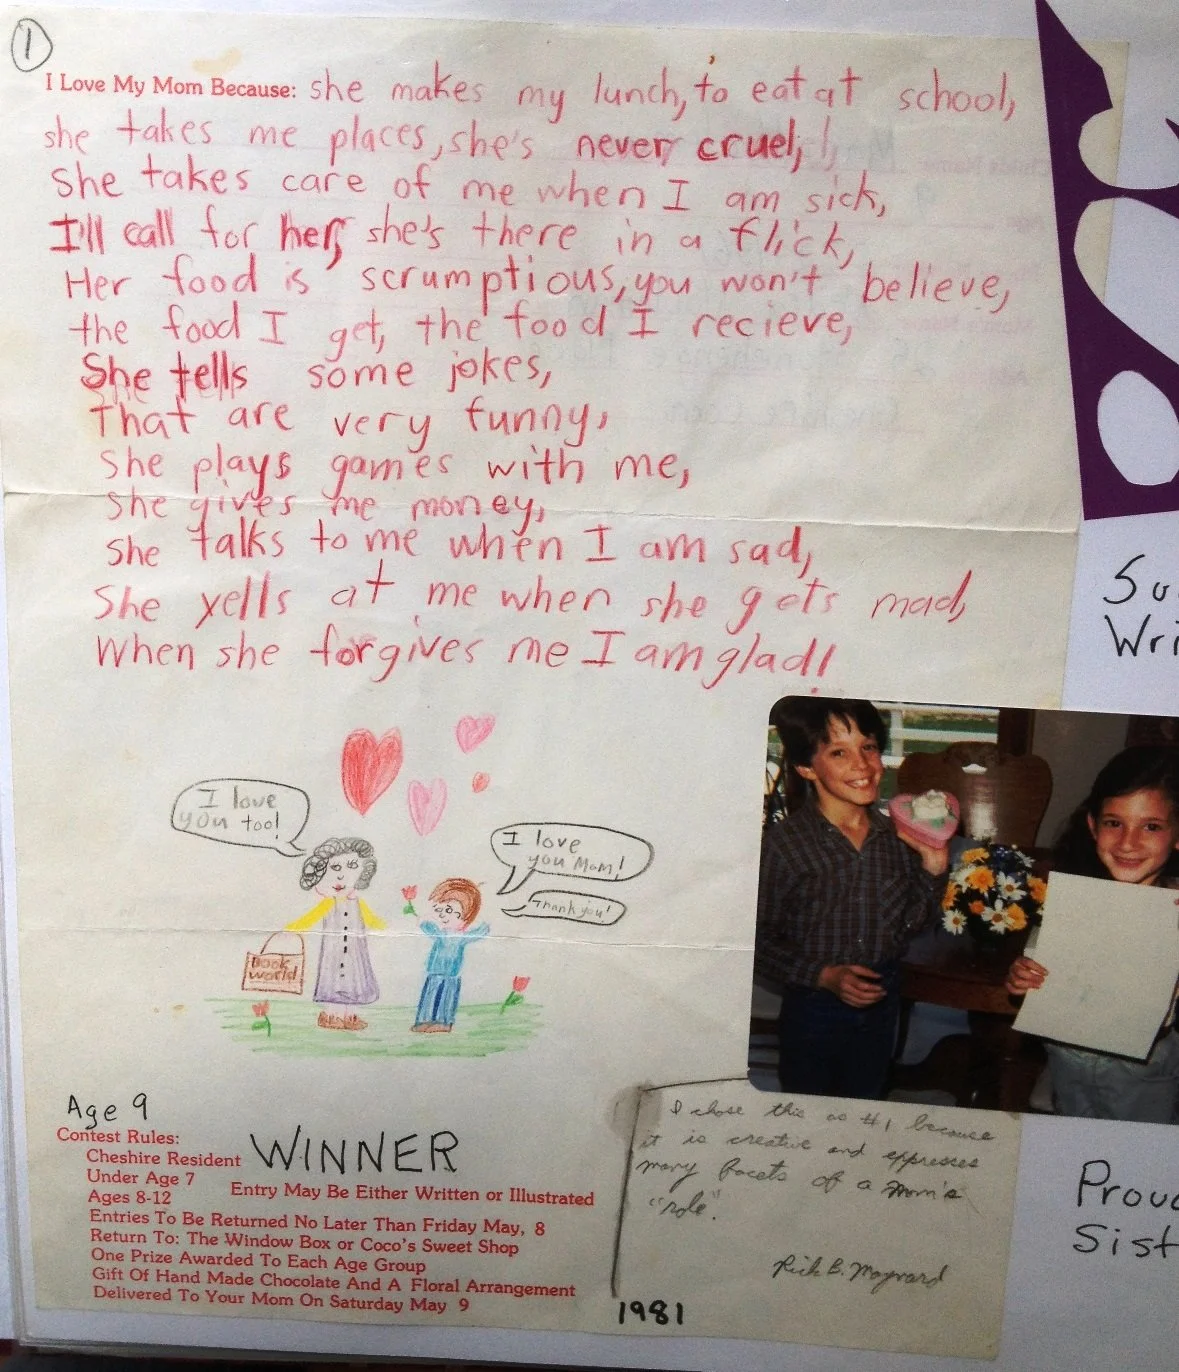 1
I Love My Mom Because: she makes my lunch, to eat at school,
she takes me places, she's never cruel,
She takes care of me when I am sick,
I'll call for her, she's there in a flick,
Her food is scrumptious, you won't believe,
the food I get, the food I recieve,
She tells some jokes,
That are very funny,
She plays games with me,
She gives me money,
She talks to me when I am sad,
She yells at me when she gets mad,
When she forgives me I am glad!
I love
you too!
I love
you Mom!
Thank you!
Book
world
Age 9
WINNER
Contest Rules:
Cheshire Resident
Under Age 7
Ages 8-12
Entry May Be Either Written or Illustrated
Entries To Be Returned No Later Than Friday May, 8
Return To: The Window Box or Coco's Sweet Shop
One Prize Awarded To Each Age Group
Gift Of Hand Made Chocolate And A Floral Arrangement
Delivered To Your Mom On Saturday May 9
I chose this as #1 because
it is creative and expresses
many facets of a mom's
"role".
Rich B. Maynard
1981
Su
Wri
Prou
Sist